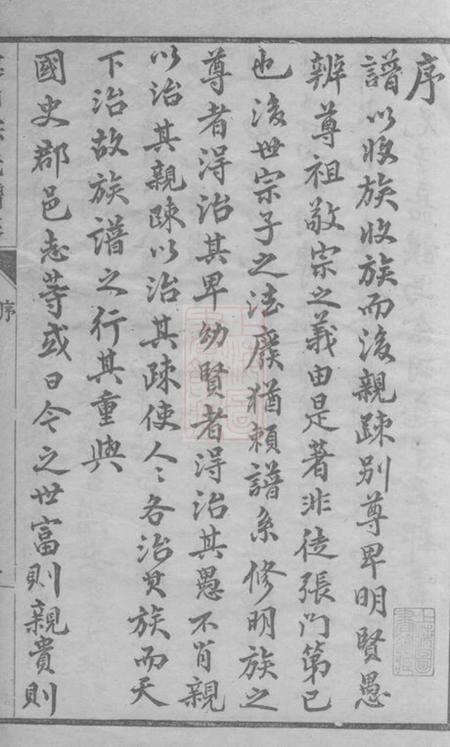 序
譜以收族收族而後親疎别尊卑明賢愚
辨尊祖敬宗之義由是著非徒張門第已
也後世宗子之法廢猶頼譜系修明族之
尊者得治其卑幼賢者得治其愚不肖親
以治其親疎以治其疎使人〻各治其族而天
下治故族譜之行其重與
國史郡邑志等或曰今之世富則親貴則
序